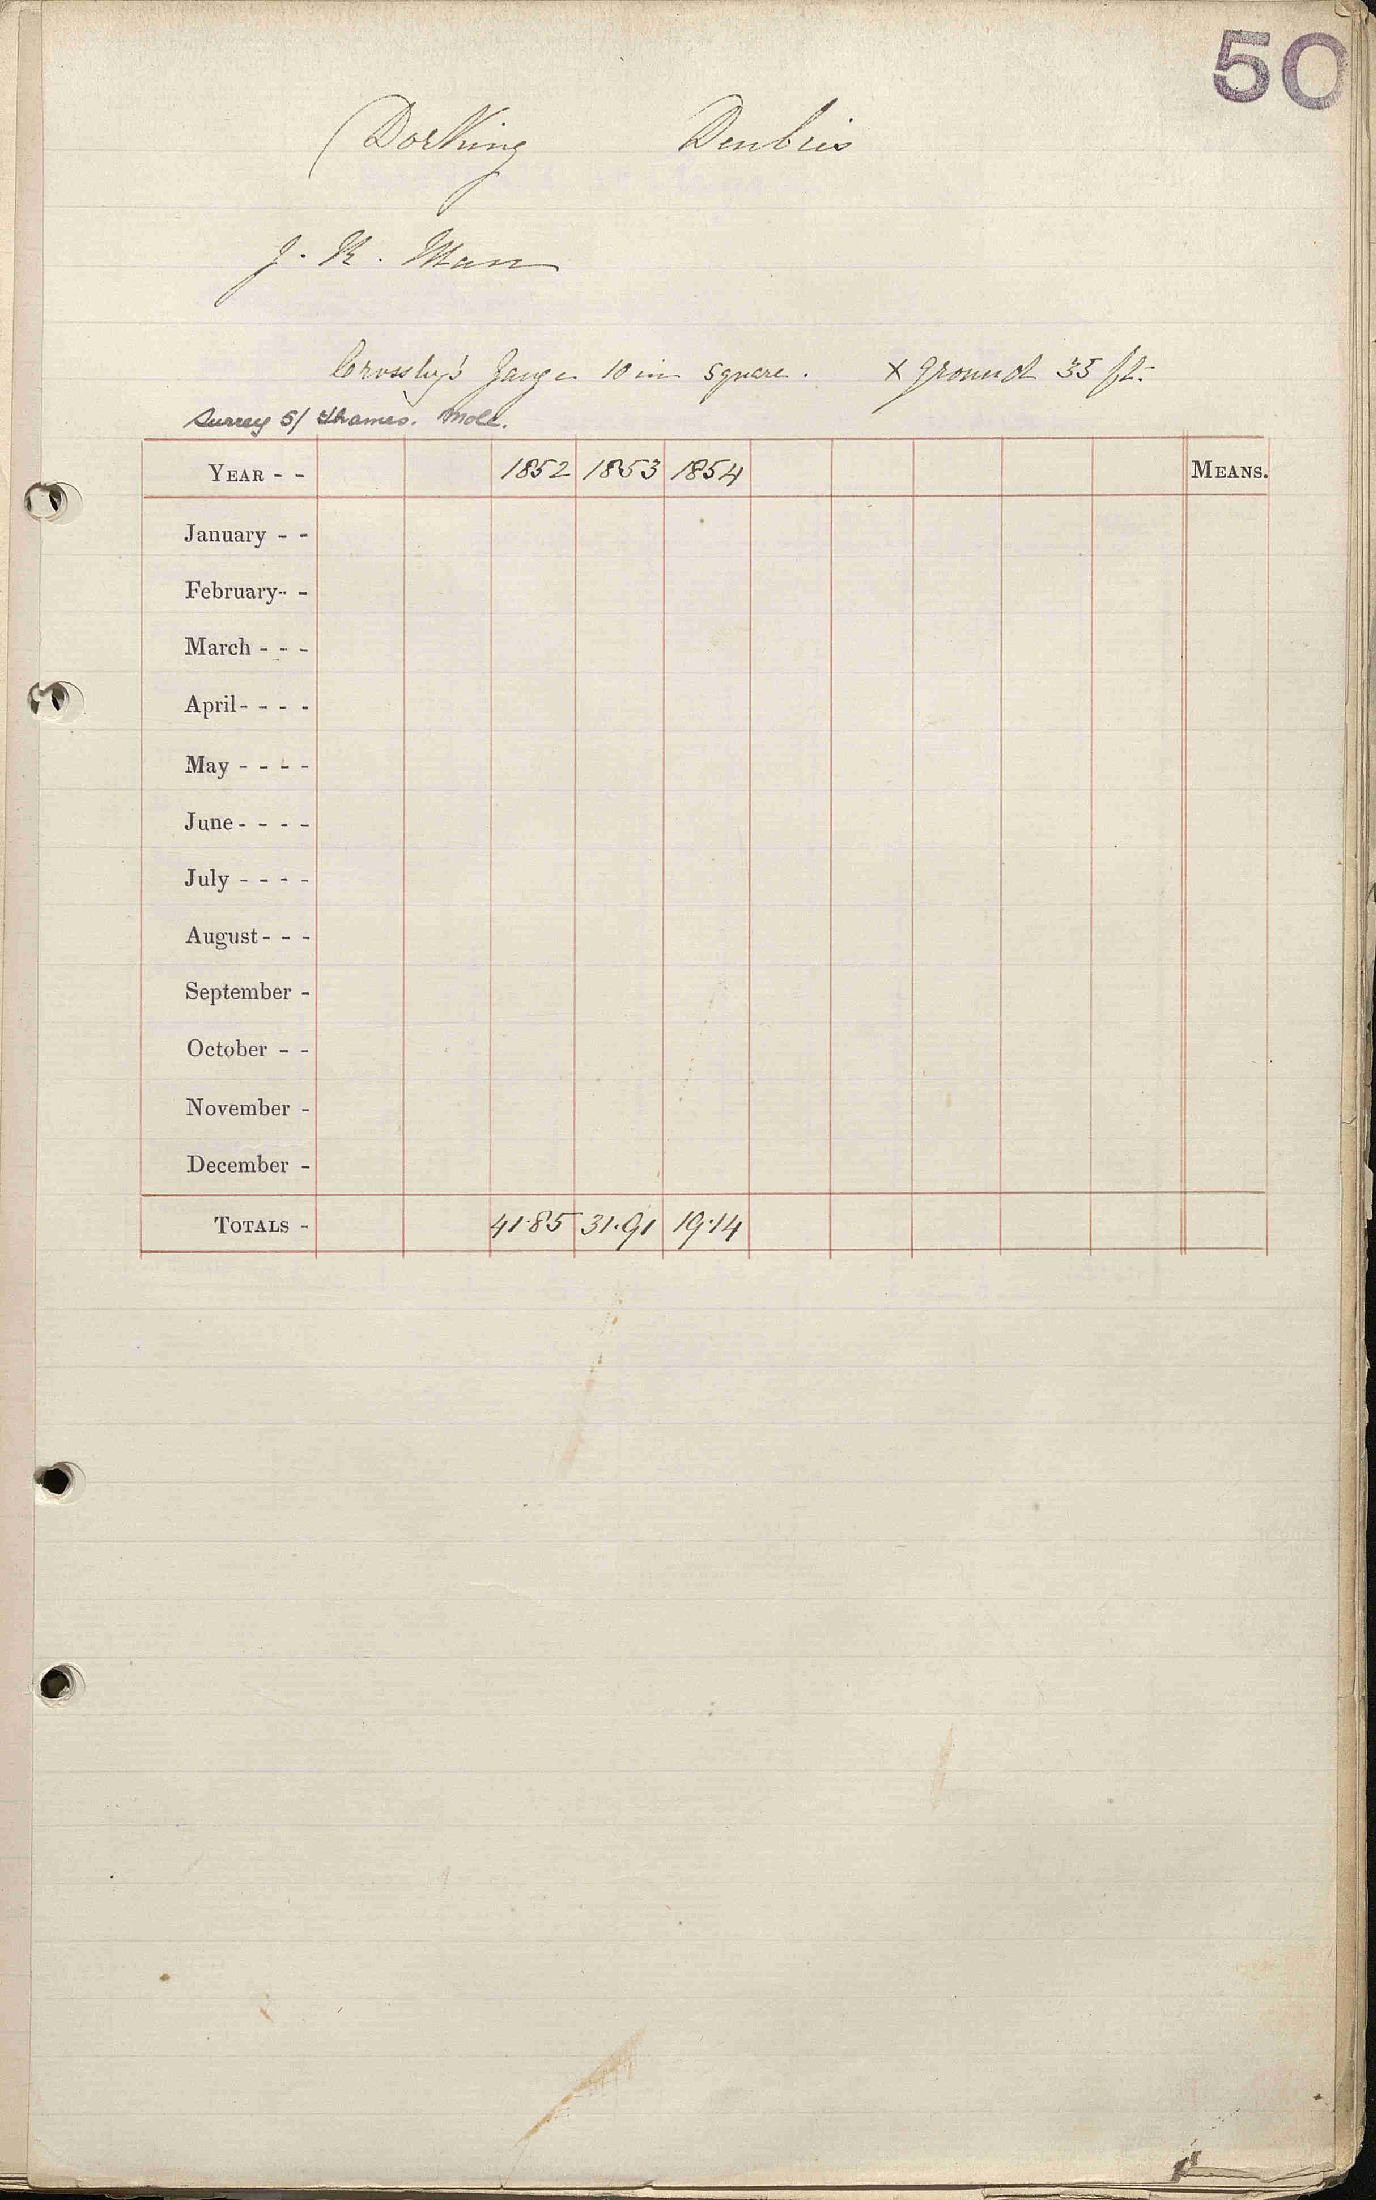 50
Dorking Denbies
J. R. Mann
Crossley's Gauge 10 in square. × ground 35 ft.
Surrey 5/ Thames. Mole.
YEAR - - 1852 1853 1854 MEANS.
January - -
February- -
March - - -
April- - - -
May - - - -
June- - - -
July - - - -
August- - -
September -
October - -
November -
December -
TOTALS - 41.85 31.91 19.14